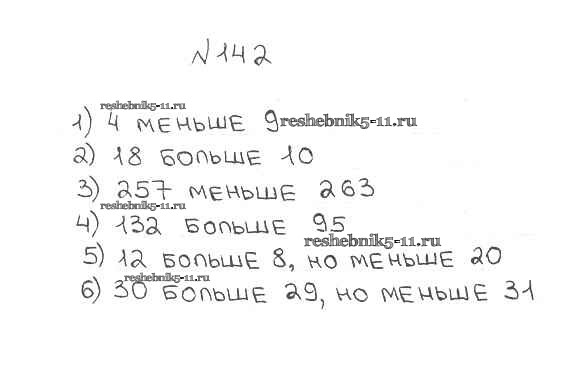 №142
reshebnik5-11.ru
1) 4 меньше 9 reshebnik5-11.ru
2) 18 больше 10
3) 257 меньше 263
reshebnik5-11.ru
4) 132 больше 95
reshebnik5-11.ru
5) 12 больше 8, но меньше 20
reshebnik5-11.ru
6) 30 больше 29, но меньше 31